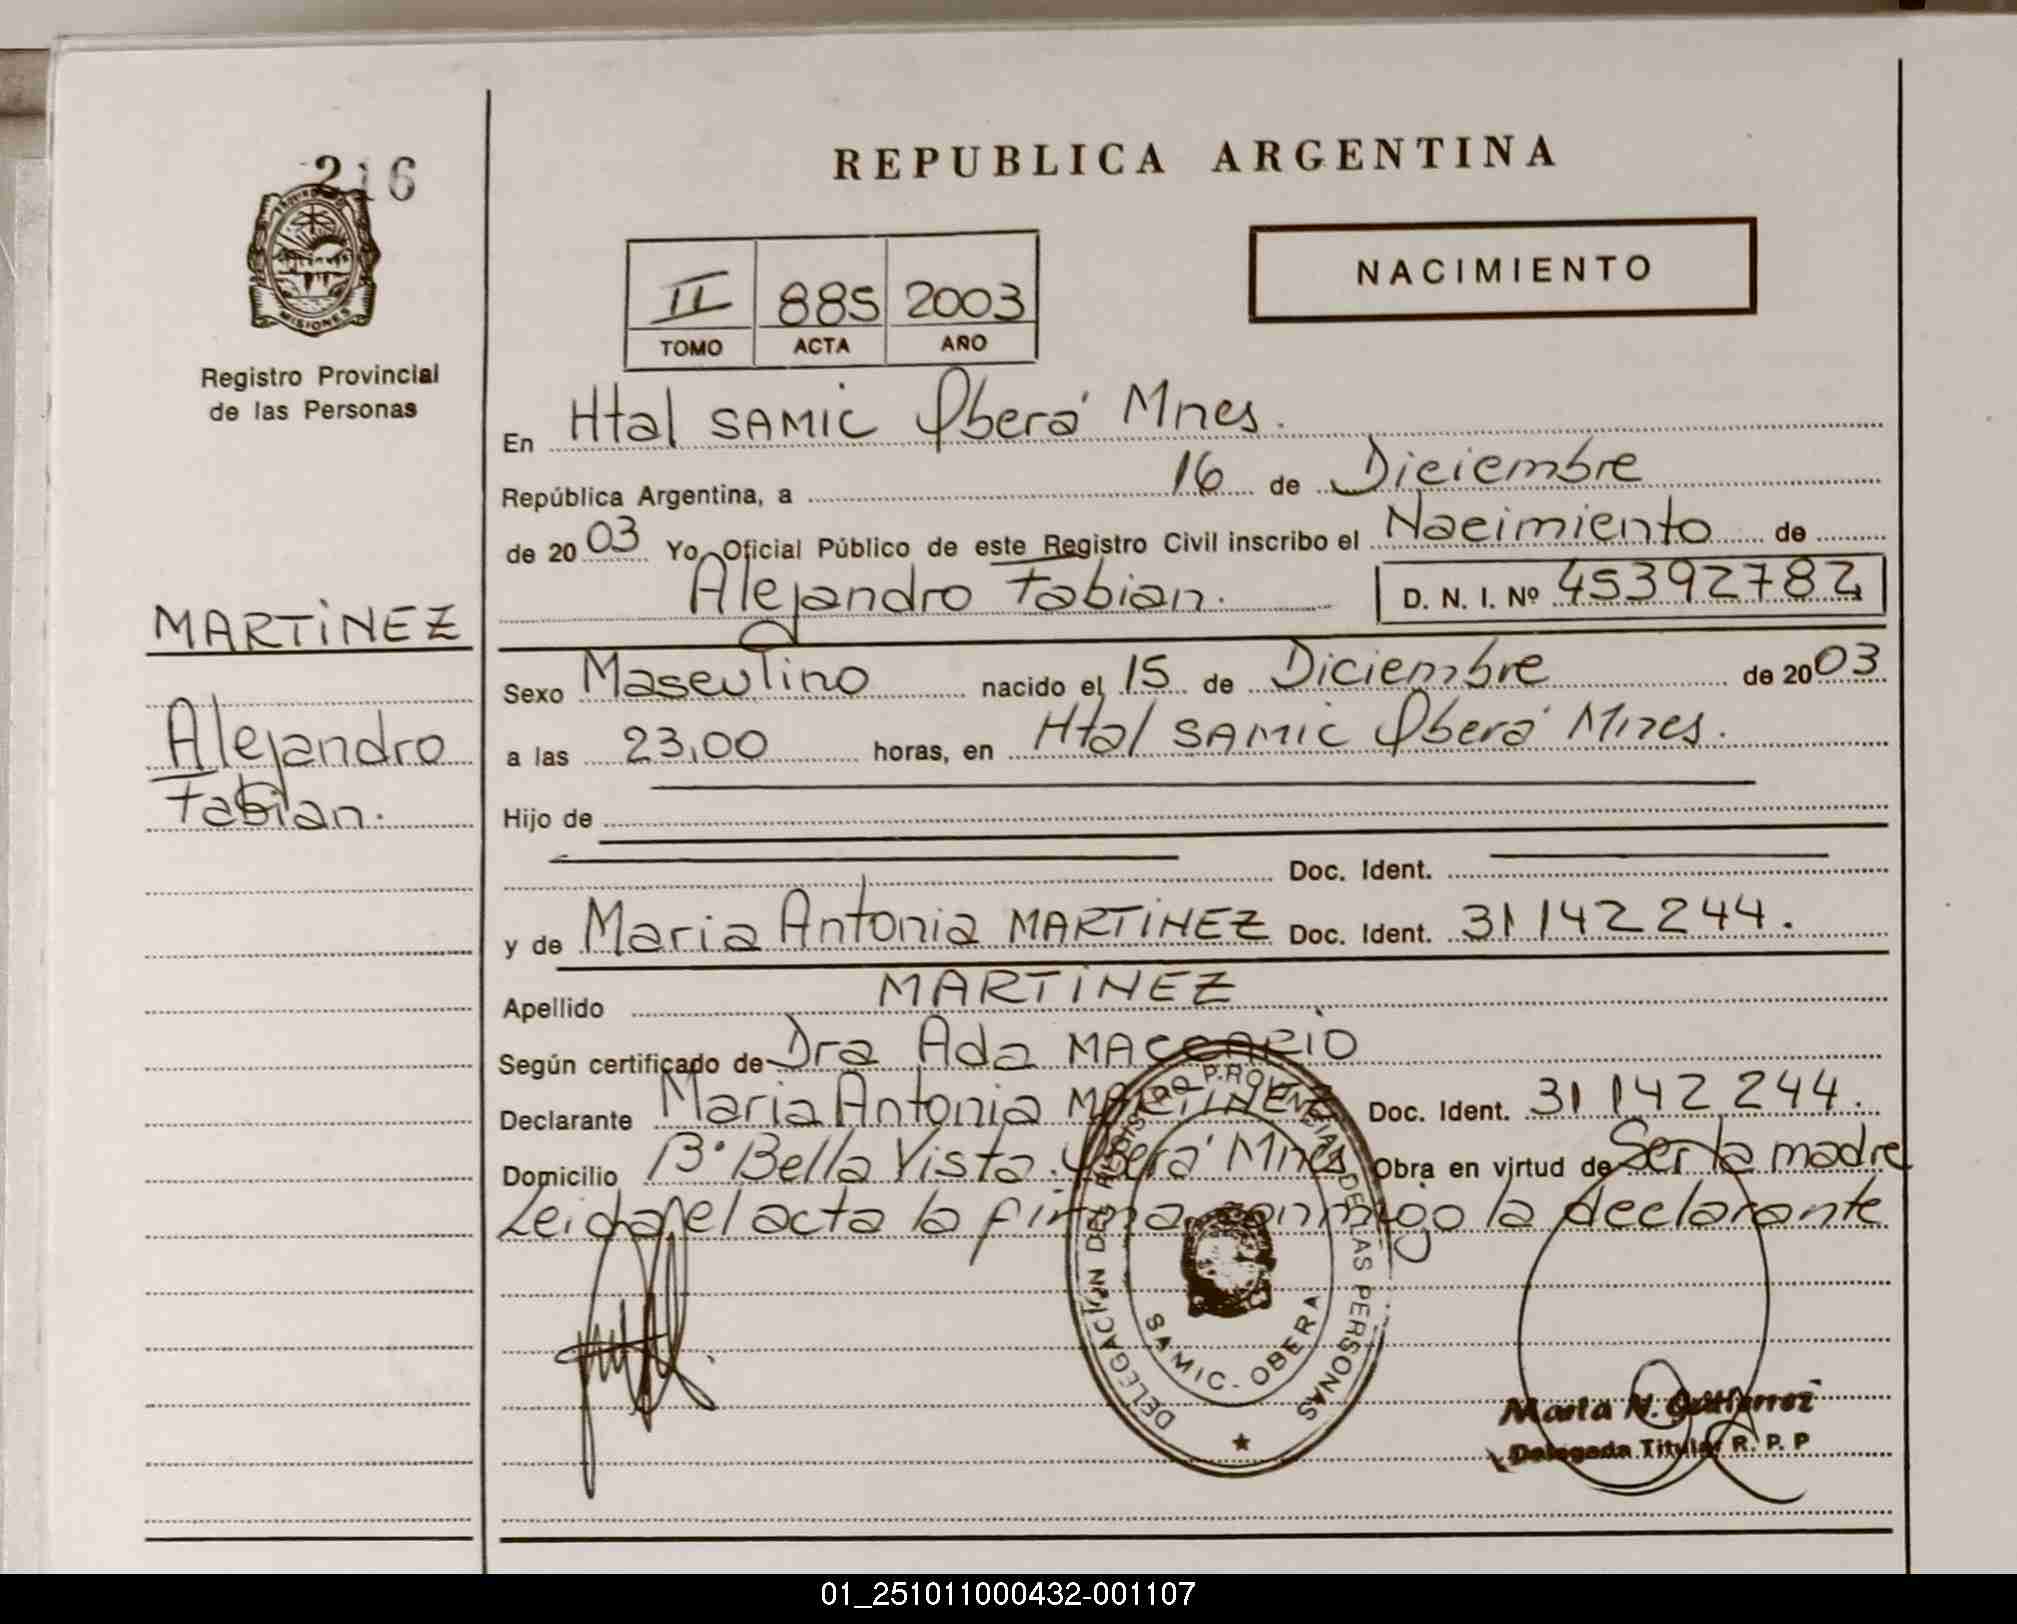 216
MISIONES
Registro Provincial
de las Personas
MARTINEZ
Alejandro
Fabian.
REPUBLICA ARGENTINA
II 885 2003
TOMO ACTA AÑO
NACIMIENTO
En Htal SAMIC Oberá Mnes.
República Argentina, a 16 de Diciembre
de 2003 Yo, Oficial Público de este Registro Civil inscribo el Nacimiento de
Alejandro Fabian. D. N. I. Nº 45392782
Sexo Masculino nacido el 15 de Diciembre de 2003
a las 23,00 horas, en Htal SAMIC Oberá Mnes.
Hijo de
Doc. Ident.
y de Maria Antonia MARTINEZ Doc. Ident. 31142244.
Apellido MARTINEZ
Según certificado de Dra Ada MACCARIO
Declarante Maria Antonia MARTINEZ Doc. Ident. 31142244.
Domicilio B° Bella Vista. Oberá Mnes Obra en virtud de Ser la madre
Leida el acta la firma conmigo la declarante
DELEGACIÓN DEL REGISTRO PROVINCIAL DE LAS PERSONAS
SAMIC - OBERA
Marta N. Gutierrez
Delegada Titular R. P. P
01_251011000432-001107